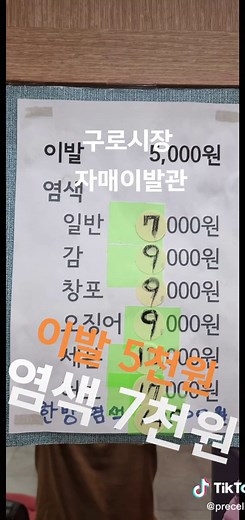 구로시장
이발 5,000원
자매이발관
염색
일반 7,000원
감 9,000원
창포 9,000원
오징어 9,000원
이발 5천원
염색 7천원
한방염색
TikTo
@precel